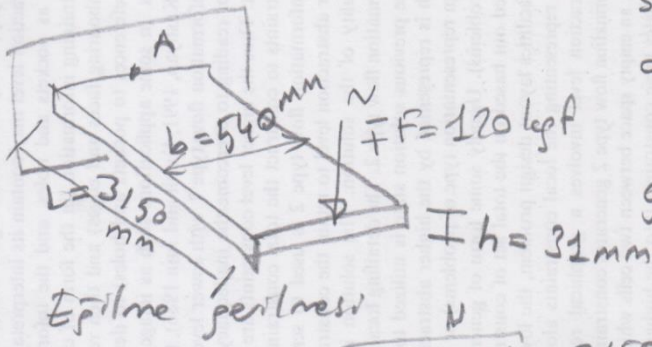 A
b=540 mm
N
F=120 kgf
L=3150
mm
h=31mm
Eğilme gerilmesi
N